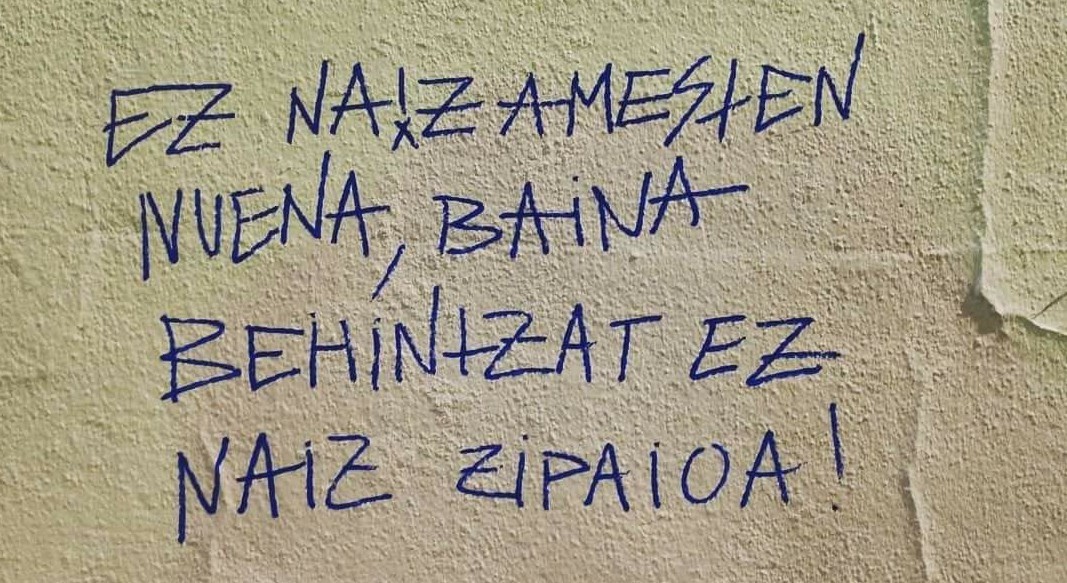 EZ NAIZ AMESTEN
NUENA, BAINA
BEHINTZAT EZ
NAIZ ZIPAIOA!